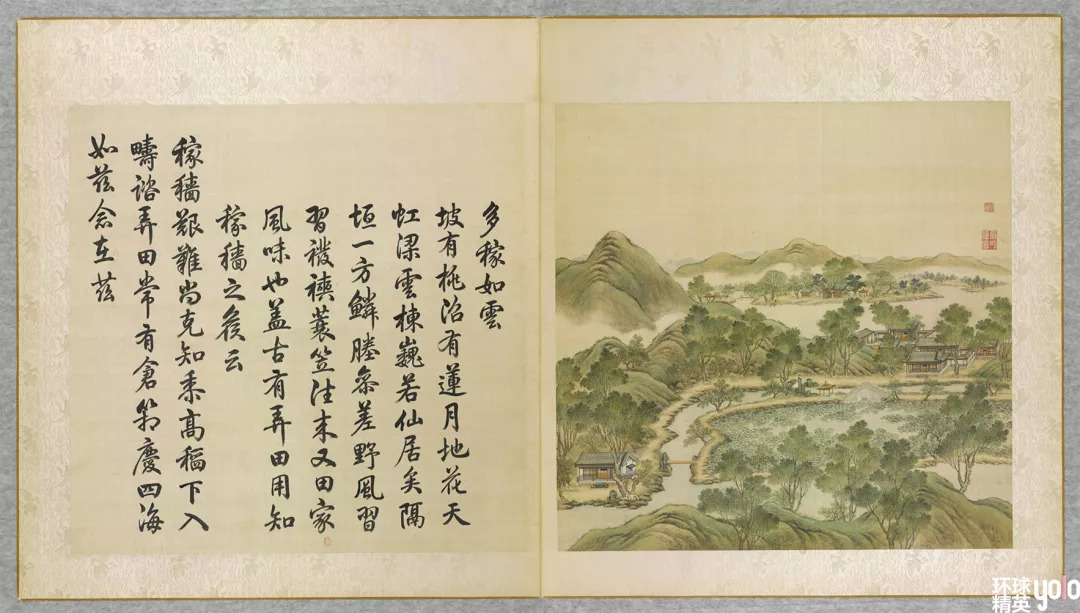 多稼如雲
坡有桃沼有蓮月地花天
虹梁雲棟巍若仙居矣隔
垣一方鱗塍參差野風習
習襏襫蓑笠往来又田家
風味也蓋古有弄田用知
稼穡之候云
稼穡艱難尚克知黍高稲下入
疇諮弄田常有倉箱慶四海
如茲念在茲
环球
精英
yolo